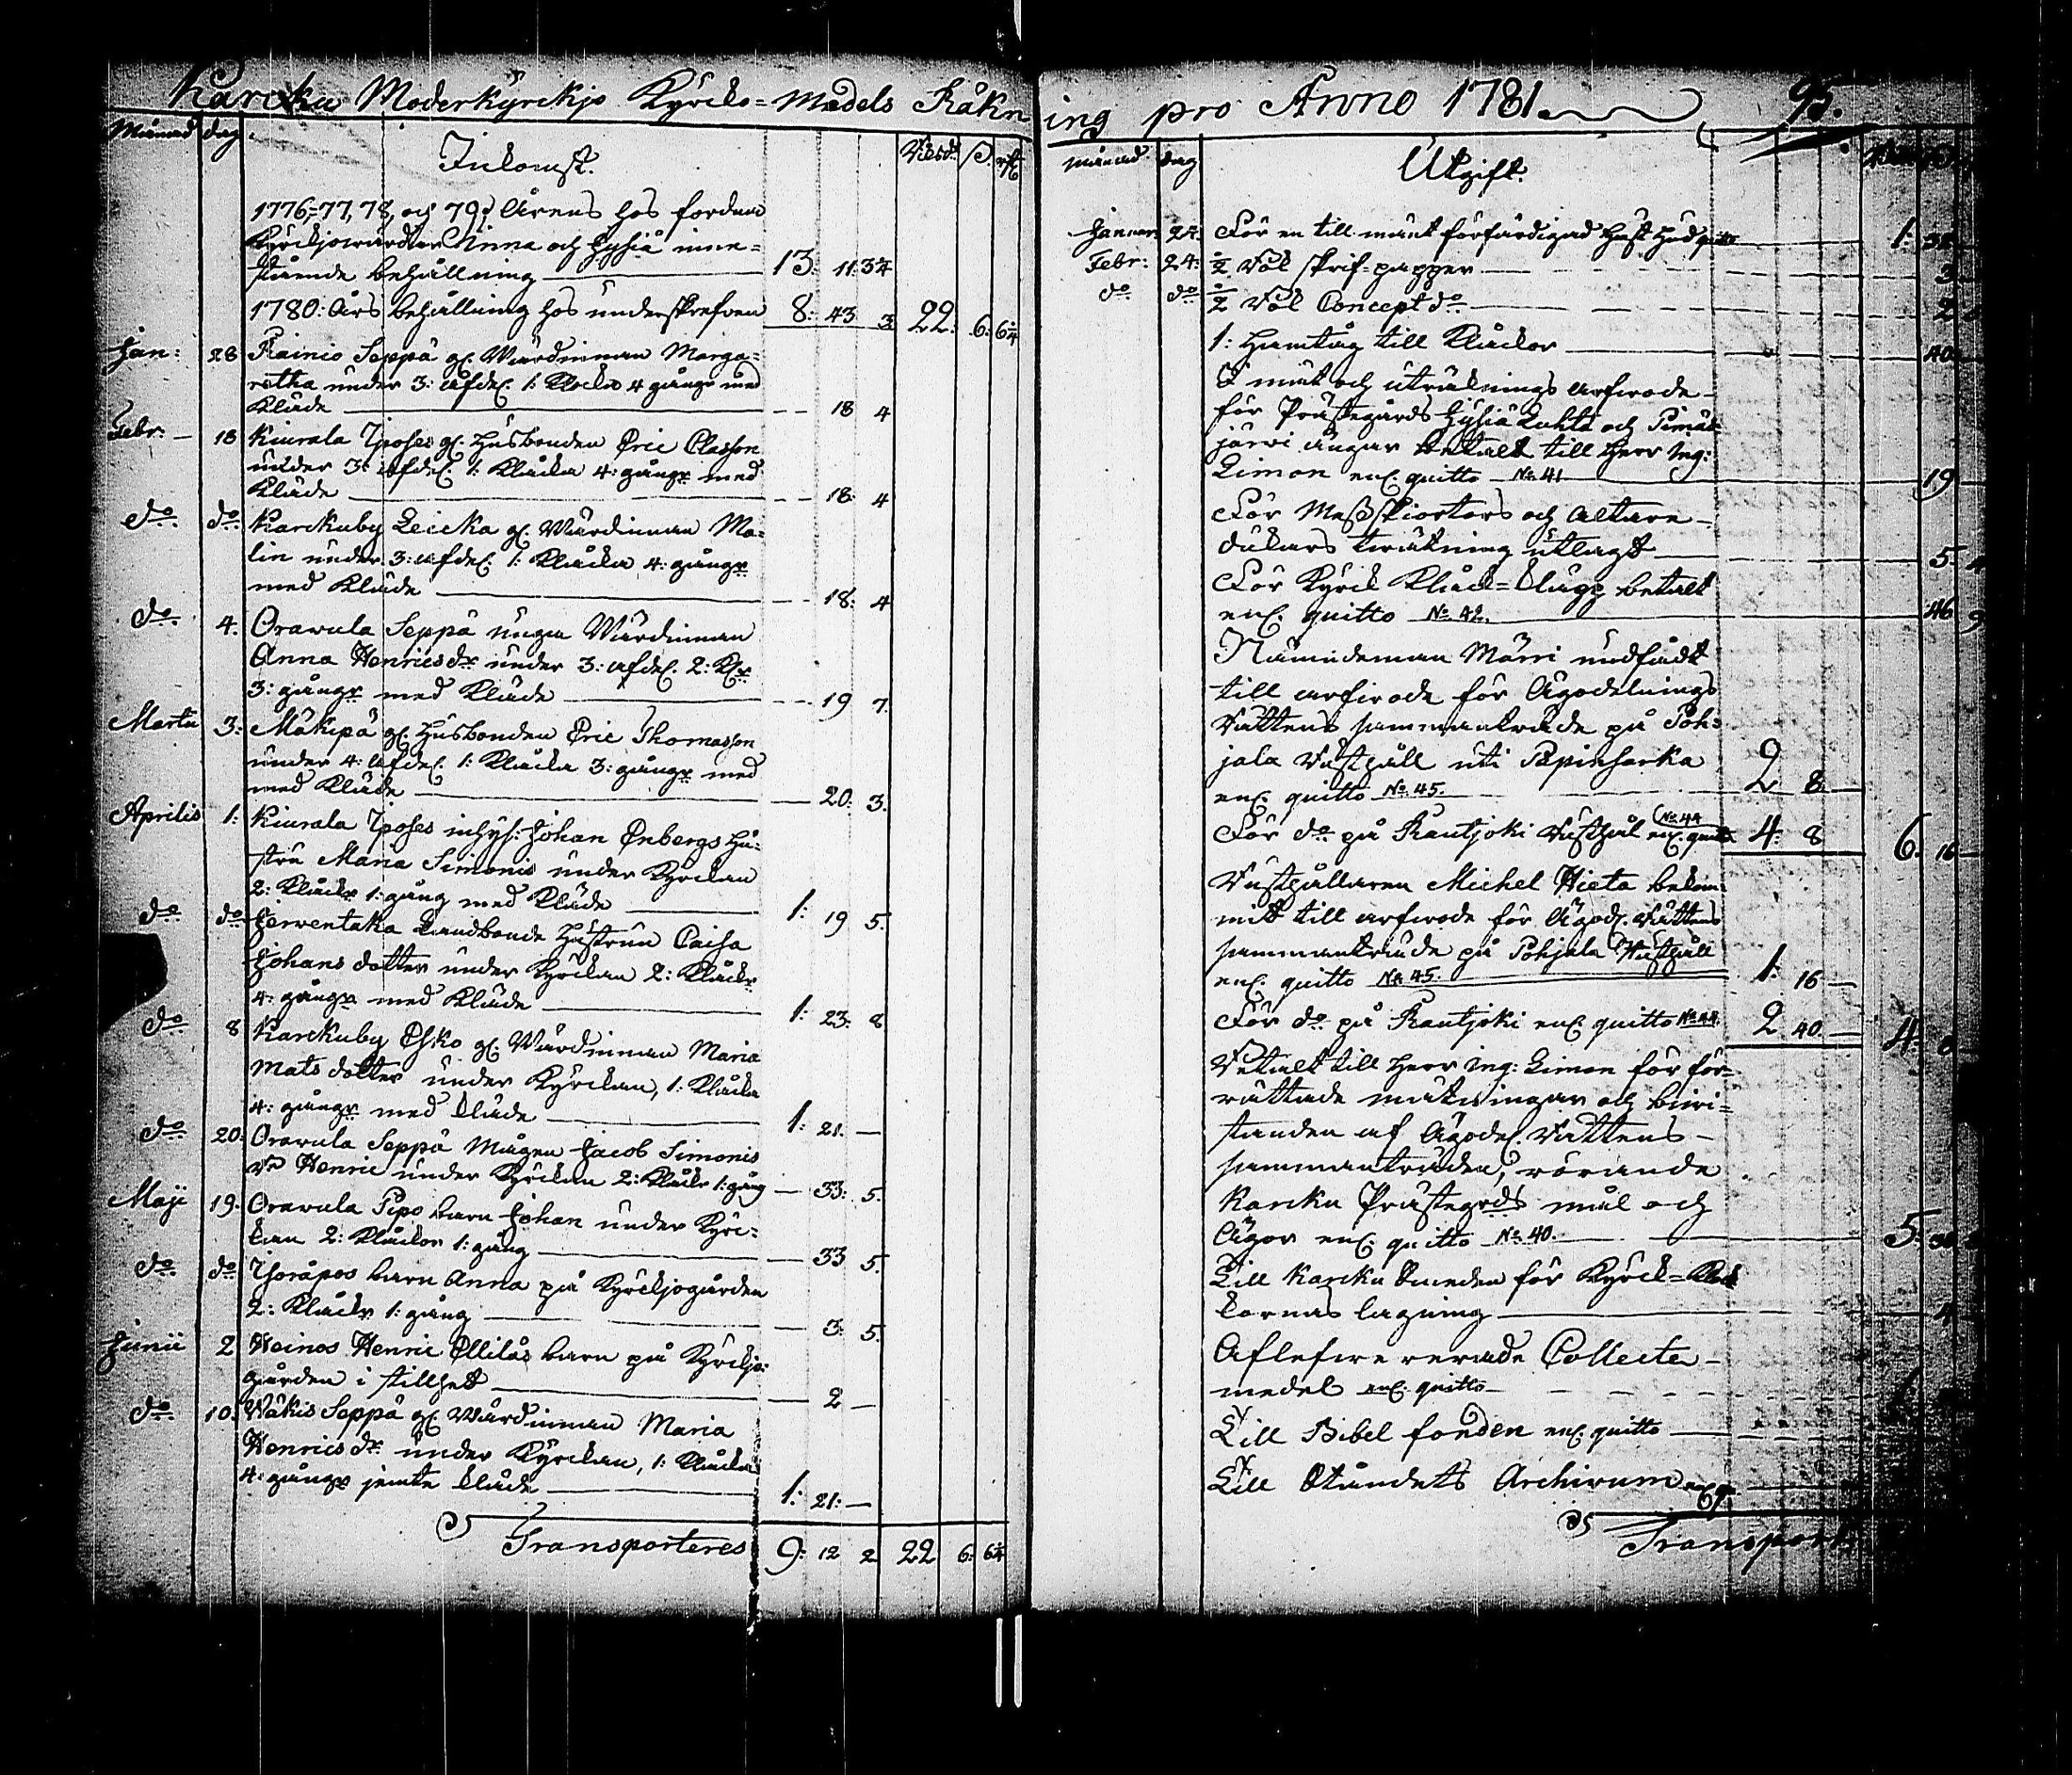 Karcku Moderkÿrckjo Kÿrcko=Medels Räkn
Månad dag
Inkomst.
Riksd. s. rst
1776,=77, 78, och 79: Årens hos fordna
Kÿrckjowärdten Anna och Hyhiä inne=
stående behållning 13: 11: 3 1/4
1780: Års behållning hos underskrefven 8: 43 3. 22: 6: 6 1/4
Jan: 28 Rainio Seppä gl. Wärdinnan Marga=
retha under 3: afdel. 1: Klocka 4 gångr med
Kläde 18 4
Febr. 18 Kiurala Iposes gl. Husbonden Eric Classon
under 3: afdel. 1: Klåcka 4: gångr med
Kläde 18: 4
do do Karckuby Leicka gl. Wärdinnan Ma=
lin under 3: afdel: 1: Klåcka 4: gångr
med Kläde 18: 4
do 4. Oravula Seppä unga Wärdinnan
Anna Henricsdr under 3: afdel. 2: Klr
3: gångr med Kläde 19 7.
Martii 3: Mäkipä gl. Husbonden Eric Thomasson
under 4: afdel. 1: Klåcka 3: gångr med
med Kläde 20: 3.
Aprilis 1: Kiurala Iposes inhys: Johan Enbergs Hu=
stru Maria Simonis under Kyrckan
2: Klåckr 1: gång med Kläde 1: 19 5.
do do Järventaka Landbonde Hustrun Caisa
Johans dotter under Kyrckan 2: Klåckr
4: gångr med Kläde 1: 23: 8
do 8 Karckuby Esko gl. Wärdinnan Maria
Mats dotter under Kÿrckan, 1: Klåcka
4: gångr med kläde 1: 21. —
do 20. Oravula Seppä Mågen Jacob Simonis
sn Henric under Kyrckan 2: Klåckr 1: gång 33: 5.
Maji 19. Oravula Pipo barn Johan under Kyrc=
kan 2: Klåckor 1: gång 33 5.
do do barn Anna på Kyrckjogården
2: Klåckr 1: gång 3: 5.
Junii 2 Heinos Henric Ollilas barn på Kyrckjo=
gården i stillhet 2 —
do 10. Wäkis Seppä gl. Wärdinnan Maria
Henricsdr under Kÿrckan, 1: Klåcka
4: gångr jemte kläde 1: 21: —
Transporteres 9: 12 2 22 6: 6 1/4
ing pro Anno 1781. 95.
månad dag
Utgift.
Januar. 24. För en till mänt förfärdigad 1: 38
Febr: 24: 1/2 bok skrif=papper 3
do do 1/2 bok Concept do 2
1: Hamtåg till Klåckor 40
I mät och uträknings arfwode
för Prästegårds Hyhiä Luhta och
järvi ängar betalt till Herr Ing:
Limon enl. quitto No 41 19
För Messkiortors och Altare
dukars twätning utlagt 5
För Kÿrck Klåck=klapp betalt
enl. quitto No 42. 46 9
Nämndeman Märri undfådt
till arfwode för Ägodelnings
Rättens sammanträde på Poh=
jala Kusthåll uti Papinsarka
enl. quitto No 45. 2 8. —
För do på Rautjoki Rusthål enl. quitto No 44 4: 8 6. 16
Rusthållaren Michel Hieta bekom=
mit till arfwode för Ägod. Rättens
sammanträde på Pohjala Rusthåll
enl. quitto No 45. 1: 16 —
För do på Rautjoki enl. quitto No 44. 2 40. — 4: 8
Betalt till Herr Ing: Limon för för=
rättade mätningar och biwi=
standen af Ägodel. Rättens
sammanträden, rörande
Karcku Prästegrds mål och
Ägor enl. quitto No 40. 5:
Till Karcku Smeden för Kyrck=Klåc
kornas lagning 4
Aflefwererade Collecte
medel enl. quitto
Till Bibel fonden enl. quitto
Till Ståndets Archivum enl. q.
Transport